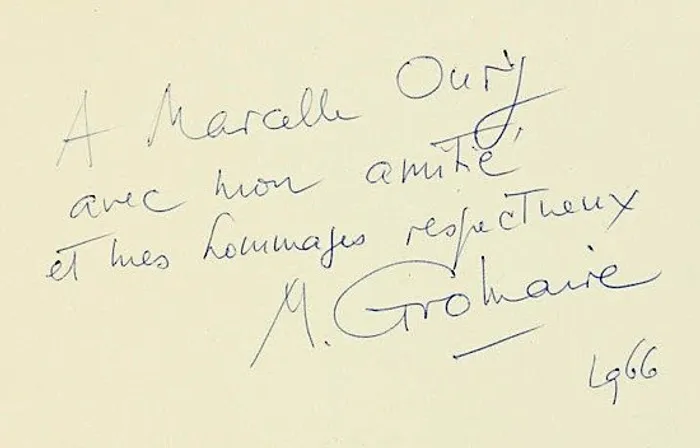 A Marcelle Oury
avec mon amitié
et mes hommages respectueux
M. Gromaire
1966